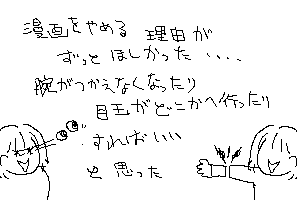 漫画をやめる 理由が
ずっと ほしかった ....
腕がつかえなくなったり
目玉がどこかへ行ったり
すればいい
と思った